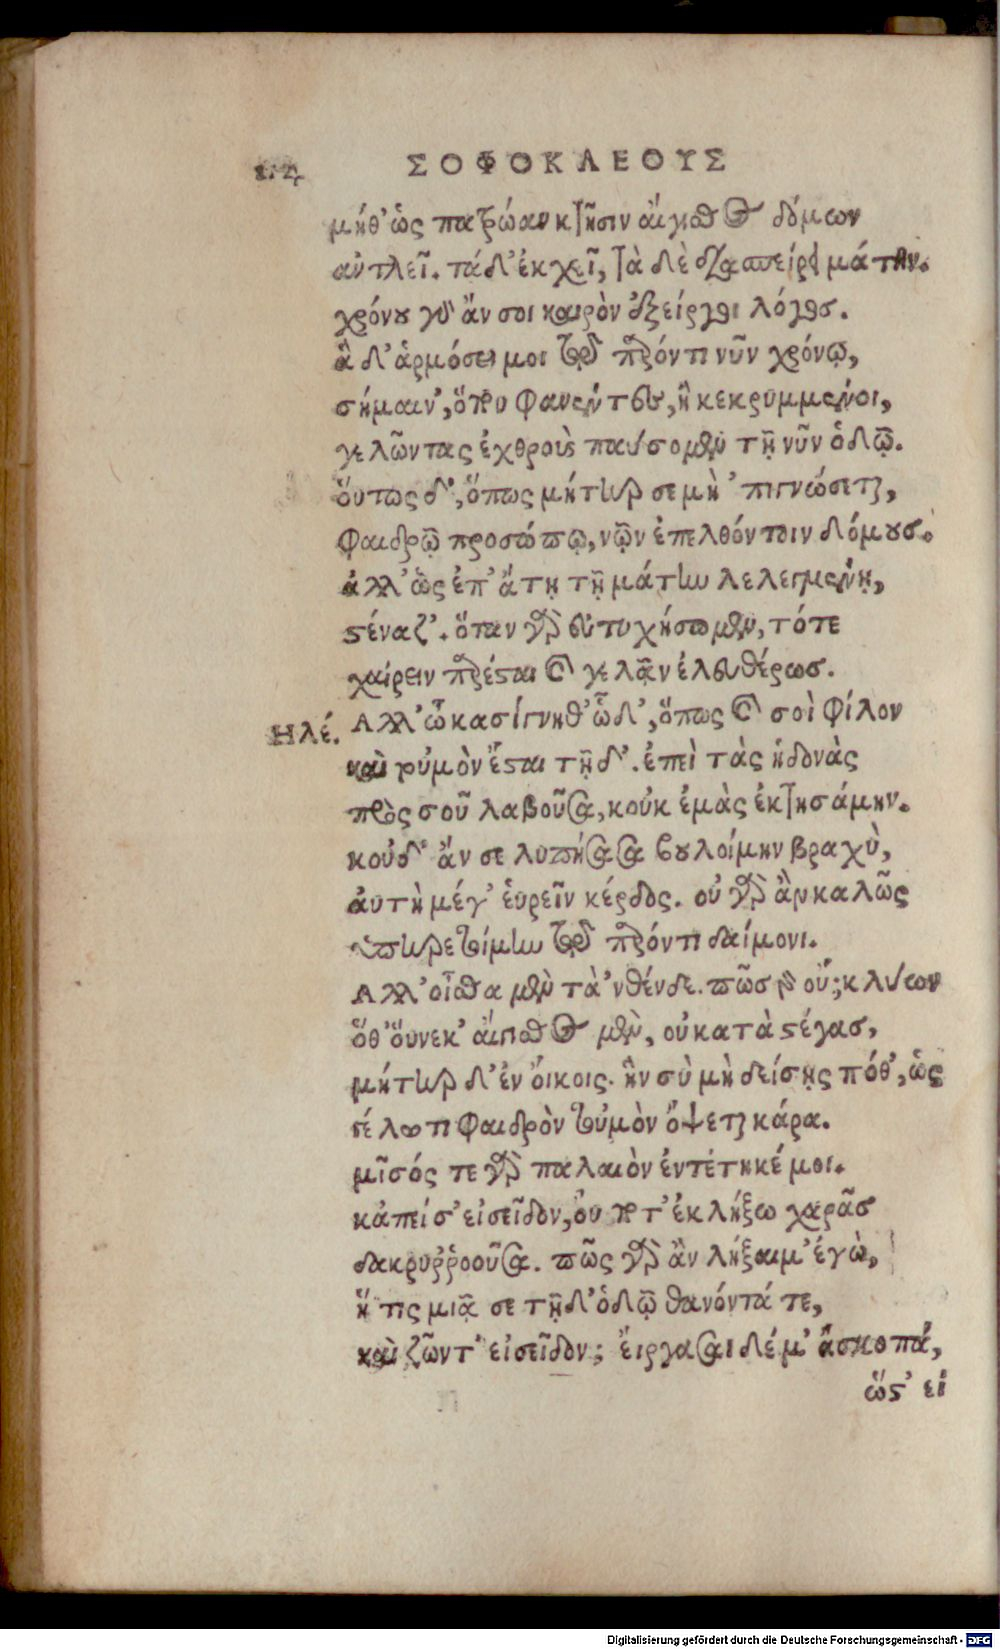 ΣΟΦΟΚΛΕΟΥΣ
μήθ' ὡς πατρώαν κτῆσιν αἴγισθος δόμων
ἀντλεῖ. τάδ' ἐκχεῖ, τὰ δὲ διασπείρει μάτην.
χρόνου γὸ ἄν σοι καιρὸν ἐξείργοι λόγος.
ἃ δ' ἁρμόσει μοι τῷ παρόντι νῦν χρόνῳ,
σήμαιν', ὅπου φανέντες, ἢ κεκρυμμένοι,
γελῶντας ἐχθροὺς παύσομεν τῇ νῦν ὁδῷ.
ὅυτως δ', ὅπως μήτηρ σε μὴ 'πιγνώσεται,
φαιδρῷ προσώπῳ, νῷν ἐπελθόντοιν δόμους.
ἀλλ' ὡς ἐπ' ἄτῃ τῇ μάτην λελεγμένῃ,
στέναζ'. ὅταν γὰρ εὐτυχήσωμεν, τότε
χαίρειν παρέσται καὶ γελᾷν ἐλευθέρως.
Ηλέ. Αλλ' ὦ κασίγνηθ' ὧδ', ὅπως καὶ σοὶ φίλον
καὶ τὐμὸν ἔσται τῇδ'. ἐπεὶ τὰς ἡδονὰς
πρὸς σοῦ λαβοῦσα, κοὐκ ἐμὰς ἐκτησάμην.
κοὐδ' ἄν σε λυπήσασα βουλοίμην βραχὺ,
ἀυτὴ μέγ' ἑυρεῖν κέρδος. οὐ γὰρ ἂν καλῶς
ὑπηρετοίμην τῷ παρόντι δαίμονι.
Αλλ' οἶσθα μὲν τὰ 'νθένδε. πῶς γὰρ οὔ; κλύων
ὅθ' ὅυνεκ' ἄιγισθος μὲν, οὐ κατὰ στέγας,
μήτηρ δ' ἐν ὄικοις. ἣν σὺ μὴ δείσῃς πόθ', ὡς
γέλωτι φαιδρὸν τὐμὸν ὄψεται κάρα.
μῖσός τε γὰρ παλαιὸν ἐντέτηκέ μοι.
κἀπεί σ' εἰσεῖδον, ὀυ ποτ' ἐκλήξω χαρᾶς
δακρυῤῥοοῦσα. πῶς γὰρ ἂν λήξαιμ' ἐγὼ,
ἥ τις μιᾷ σε τῇδ' ὁδῷ θανόντά τε,
καὶ ζῶντ' εἰσεῖδον; ἔιργασαι δέ μ' ἄσκοπά,
ὥστ' εἰ
Digitalisierung gefördert durch die Deutsche Forschungsgemeinschaft - DFG